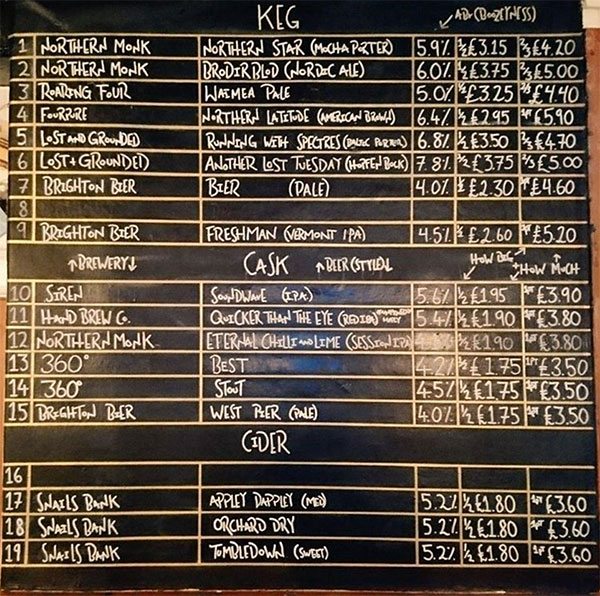 KEG ABV (BOOZEYNESS)
1 NORTHERN MONK NORTHERN STAR (MOCHA PORTER) 5.9% ½ £3.15 ⅔ £4.20
2 NORTHERN MONK BRODIR BLOD (NORDIC ALE) 6.0% ½ £3.75 ⅔ £5.00
3 ROARING FOUR WAIMEA PALE 5.0% ½ £3.25 ⅔ £4.40
4 FOURPURE NORTHERN LATITUDE (AMERICAN BROWN) 6.4% ½ £2.95 1PT £5.90
5 LOST AND GROUNDED RUNNING WITH SPECTRES (BALTIC PORTER) 6.8% ½ £3.50 ⅔ £4.70
6 LOST + GROUNDED ANOTHER LOST TUESDAY (HOPFEN BOCK) 7.8% ½ £3.75 ⅔ £5.00
7 BRIGHTON BIER BIER (PALE) 4.0% ½ £2.30 1PT £4.60
8
9 BRIGHTON BIER FRESHMAN (VERMONT IPA) 4.5% ½ £2.60 1PT £5.20
↑BREWERY↓ CASK ↑BEER (STYLE)↓ HOW BIG + HOW MUCH
10 SIREN SOUNDWAVE (IPA) 5.6% ½ £1.95 1PT £3.90
11 HAND BREW CO. QUICKER THAN THE EYE (RED IPA) 5.4% ½ £1.90 1PT £3.80
12 NORTHERN MONK ETERNAL CHILLI AND LIME (SESSION IPA) ½ £1.90 1PT £3.80
13 360° BEST 4.2% ½ £1.75 1PT £3.50
14 360° STOUT 4.5% ½ £1.75 1PT £3.50
15 BRIGHTON BIER WEST PIER (PALE) 4.0% ½ £1.75 1PT £3.50
CIDER
16
17 SNAILS BANK APPLEY DAPPLEY (MED) 5.2% ½ £1.80 1PT £3.60
18 SNAILS BANK ORCHARD DRY 5.2% ½ £1.80 1PT £3.60
19 SNAILS BANK TUMBLEDOWN (SWEET) 5.2% ½ £1.80 1PT £3.60